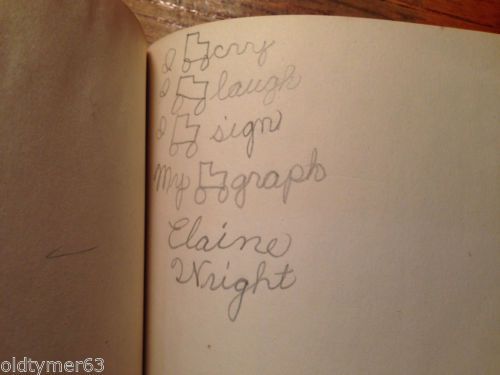 I cry
I laugh
I sign
My graph
Elaine
Wright
oldtymer63